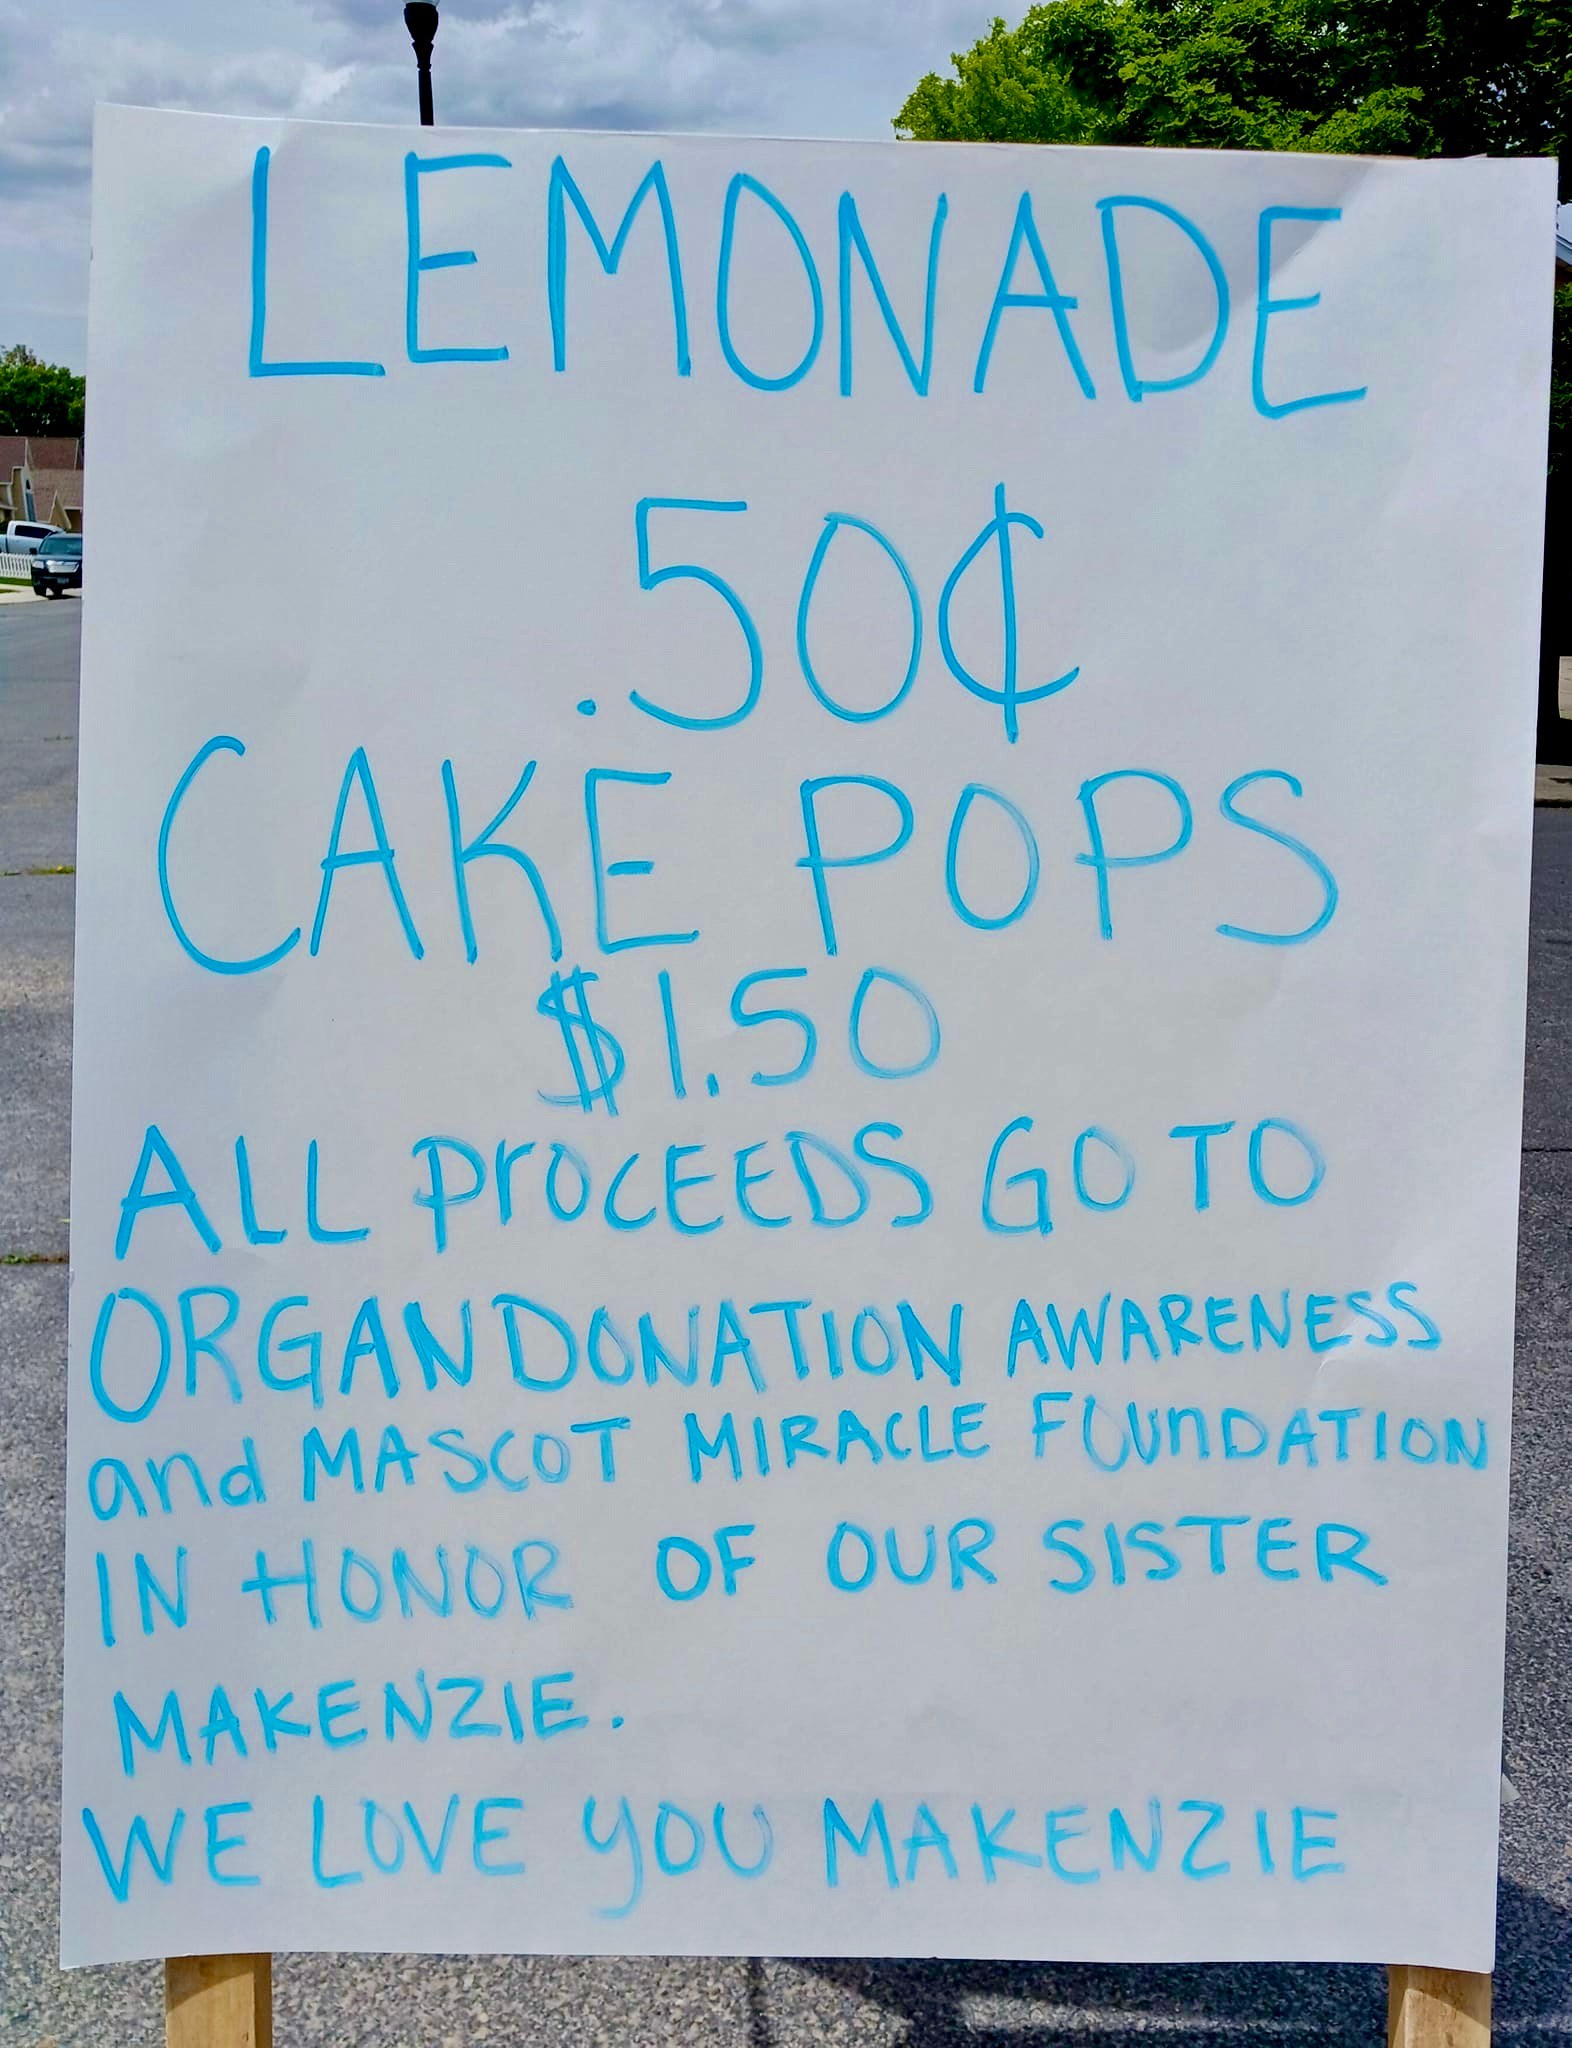 LEMONADE
.50¢
CAKE POPS
$1.50
ALL PrOCEEDS GO TO
ORGAN DONATION AWARENESS
and MASCOT MIRACLE FOUnDATION
IN HONOR OF OUR SISTER
MAKENZIE.
WE LOVE yOU MAKENZIE